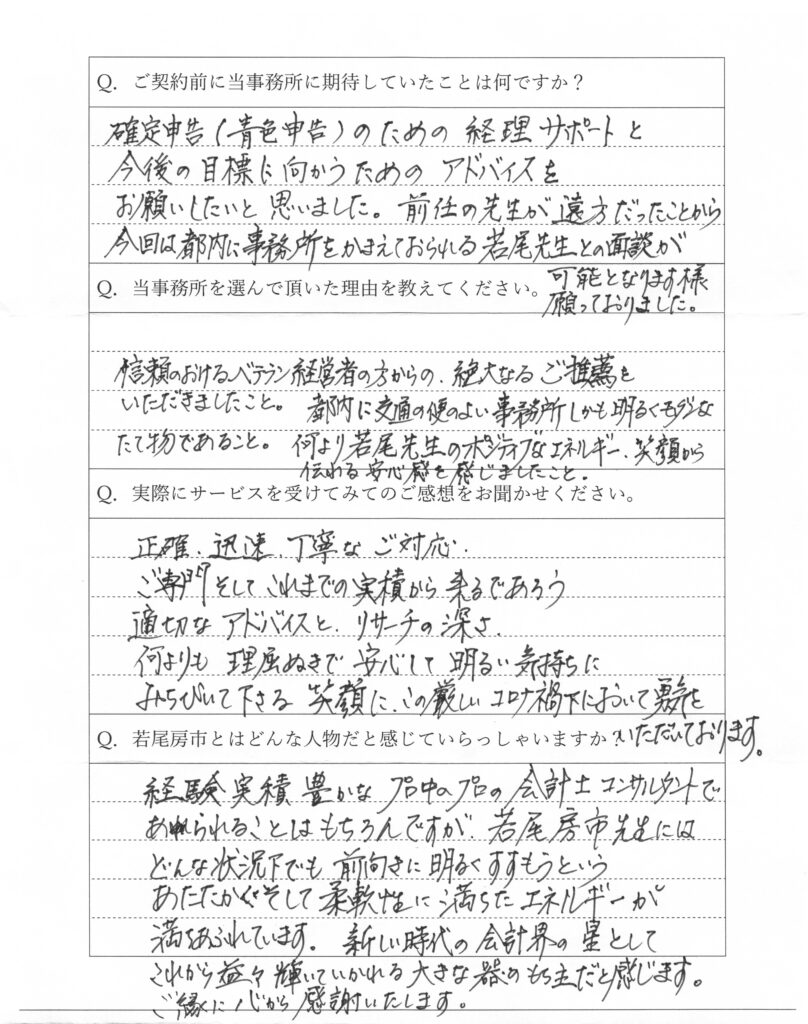 Q. ご契約前に当事務所に期待していたことは何ですか？
確定申告(青色申告)のための経理サポートと
今後の目標に向かうためのアドバイスを
お願いしたいと思いました。前任の先生が遠方だったことから
今回は都内に事務所をかまえておられる若尾先生との面談が
可能となります様
願っておりました。
Q. 当事務所を選んで頂いた理由を教えてください。
信頼のおけるベテラン経営者の方からの、絶大なるご推薦を
いただきましたこと。都内に交通の便のよい事務所しかも明るくモダンな
たて物であること。何より若尾先生のポジティブなエネルギー、笑顔から
伝わる安心感を感じましたこと。
Q. 実際にサービスを受けてみてのご感想をお聞かせください。
正確、迅速、丁寧なご対応、
ご専門そしてこれまでの実積から来るであろう
適切なアドバイスと、リサーチの深さ、
何よりも理屈ぬきで安心して明るい気持ちに
みちびいて下さる笑顔に、この厳しいコロナ禍下において勇気を
いただいております。
Q. 若尾房市とはどんな人物だと感じていらっしゃいますか？
経験実積豊かなプロ中のプロの会計士コンサルタントで
あられることはもちろんですが、若尾房市先生には
どんな状況下でも前向きに明るくすすもうという
あたたかくそして柔軟性に満ちたエネルギーが
満ちあふれています。新しい時代の会計界の星として
これから益々輝いていかれる大きな器のもち主だと感じます。
ご縁に心から感謝いたします。